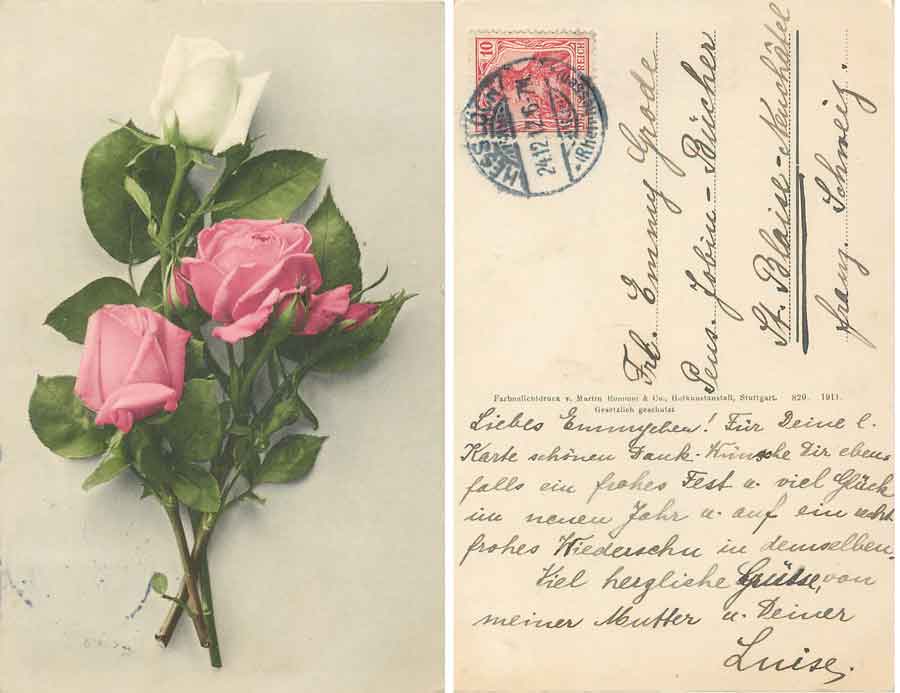 10
REICH
HESSLOCH
24.12.12.6-7N.
(Rheinhessen)
Frl. Emmy Grode
Pens. Jobin-Bücher
St. Blaise-Neuchâtel
franz. Schweiz.
Farbenlichtdruck v. Martin Rommel & Co., Hofkunstanstalt, Stuttgart. 820. 1911.
Gesetzlich geschützt
Liebes Emmychen! Für Deine l.
Karte schönen Dank. Wünsche Dir eben
falls ein frohes Fest u. viel Glück
im neuen Jahr u. auf ein recht
frohes Wiedersehn in demselben.
Viel herzliche Grüsse, von
meiner Mutter u. Deiner
Luise.